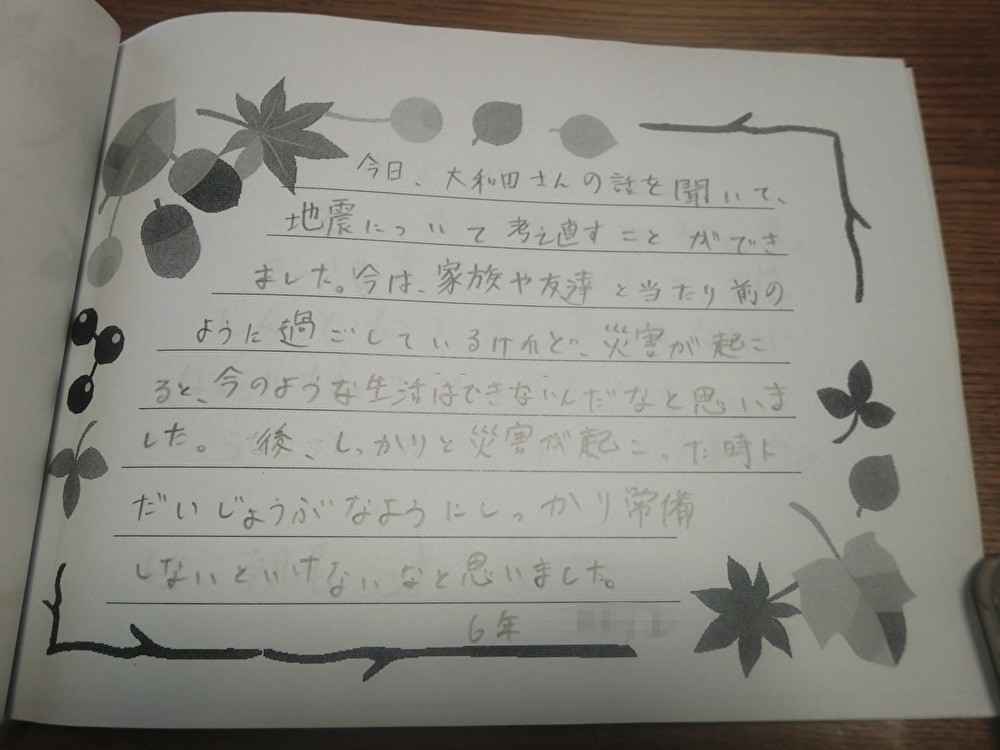 今日、大和田さんの話を聞いて、
地震について考え直すことができ
ました。今は、家族や友達と当たり前の
ように過ごしているけれど、災害が起こ
ると、今のような生活はできないんだなと思いま
した。後、しっかりと災害が起こった時に
だいじょうぶなようにしっかり常備
しないといけないなと思いました。
6年